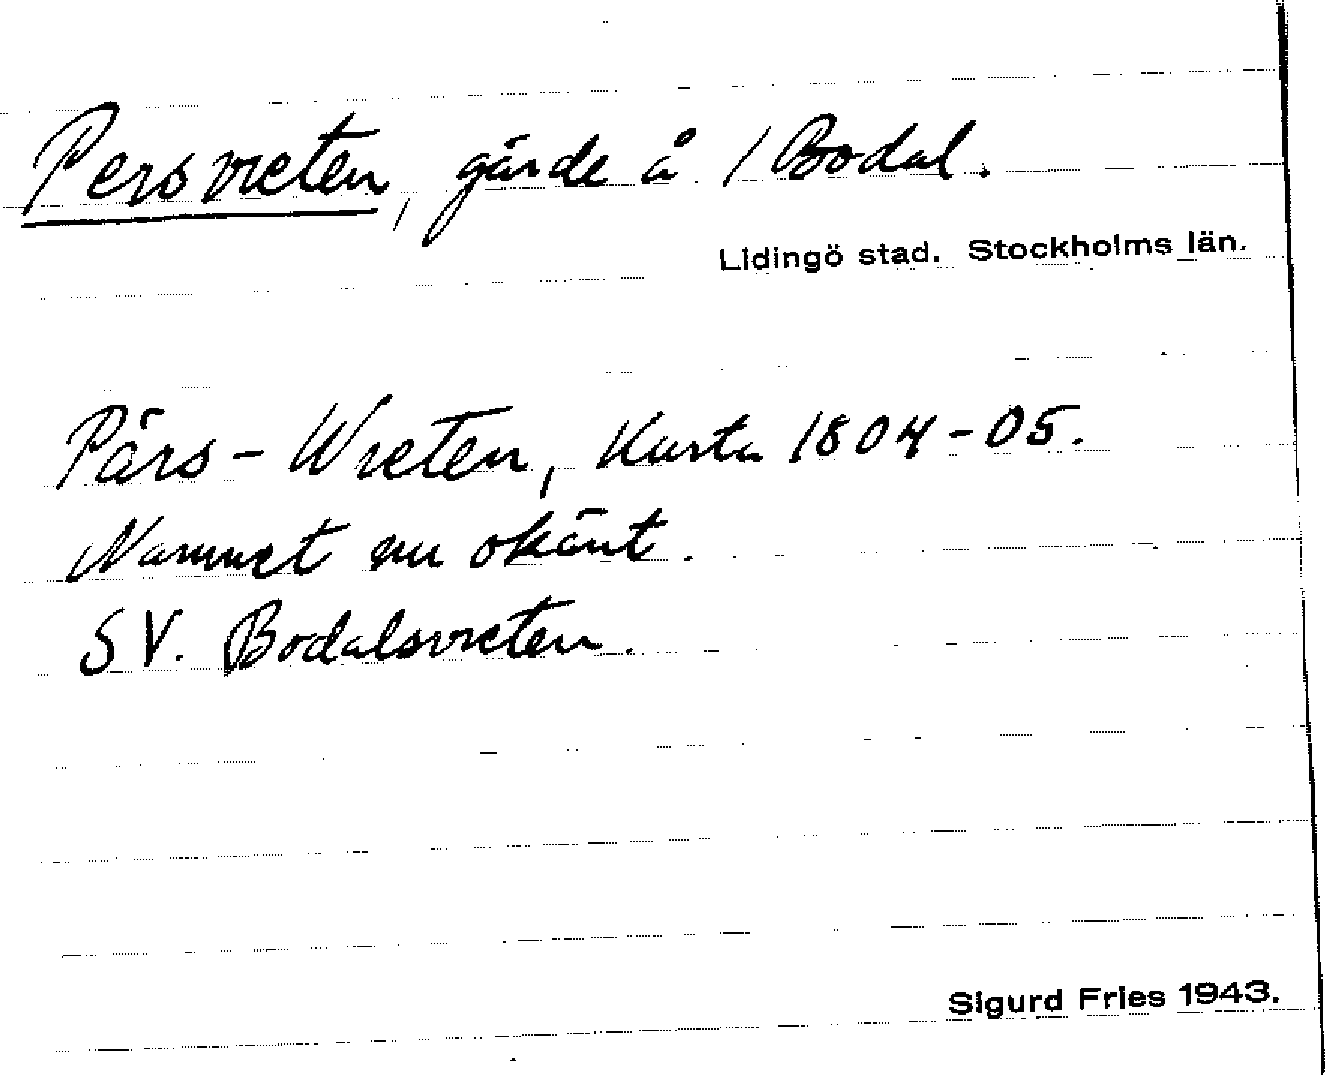 Persvreten, gärde å 1 Bodal.
Lidingö stad. Stockholms län.
Pärs-Wreten, Karta 1804-05.
Namnet nu okänt.
SV. Bodalsvreten.
Sigurd Fries 1943.